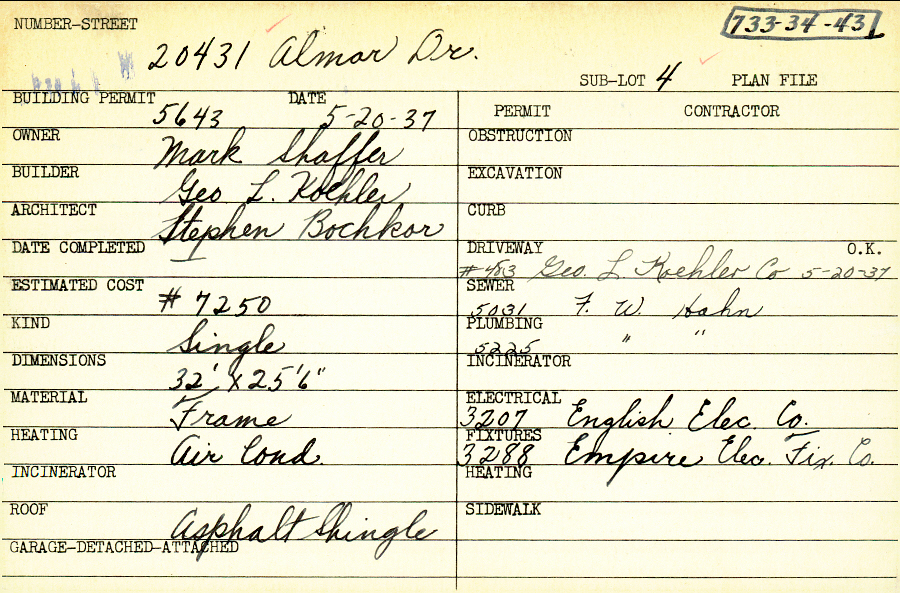 NUMBER-STREET
733-34-43
20431 Almar Dr.
SUB-LOT 4 PLAN FILE
BUILDING PERMIT DATE
5643 5-20-37
OWNER
Mark Shaffer
BUILDER
Geo L. Koehler
ARCHITECT
Stephen Bochkor
DATE COMPLETED
ESTIMATED COST
# 7250
KIND
Single
DIMENSIONS
32' x 25'6"
MATERIAL
Frame
HEATING
Air Cond.
INCINERATOR
ROOF
Asphalt Shingle
GARAGE-DETACHED-ATTACHED
PERMIT CONTRACTOR
OBSTRUCTION
EXCAVATION
CURB
DRIVEWAY O.K.
#483 Geo. L Koehler Co 5-20-37
SEWER
5031 F. W. Hahn
PLUMBING
5225 " "
INCINERATOR
ELECTRICAL
3207 English Elec. Co.
FIXTURES
3288 Empire Elec. Fix. Co.
HEATING
SIDEWALK